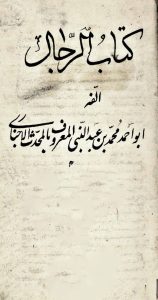 كتاب الرجال
الفه
ابو احمد محمد بن عبد النبي المعروف بالمحدث الاخباري